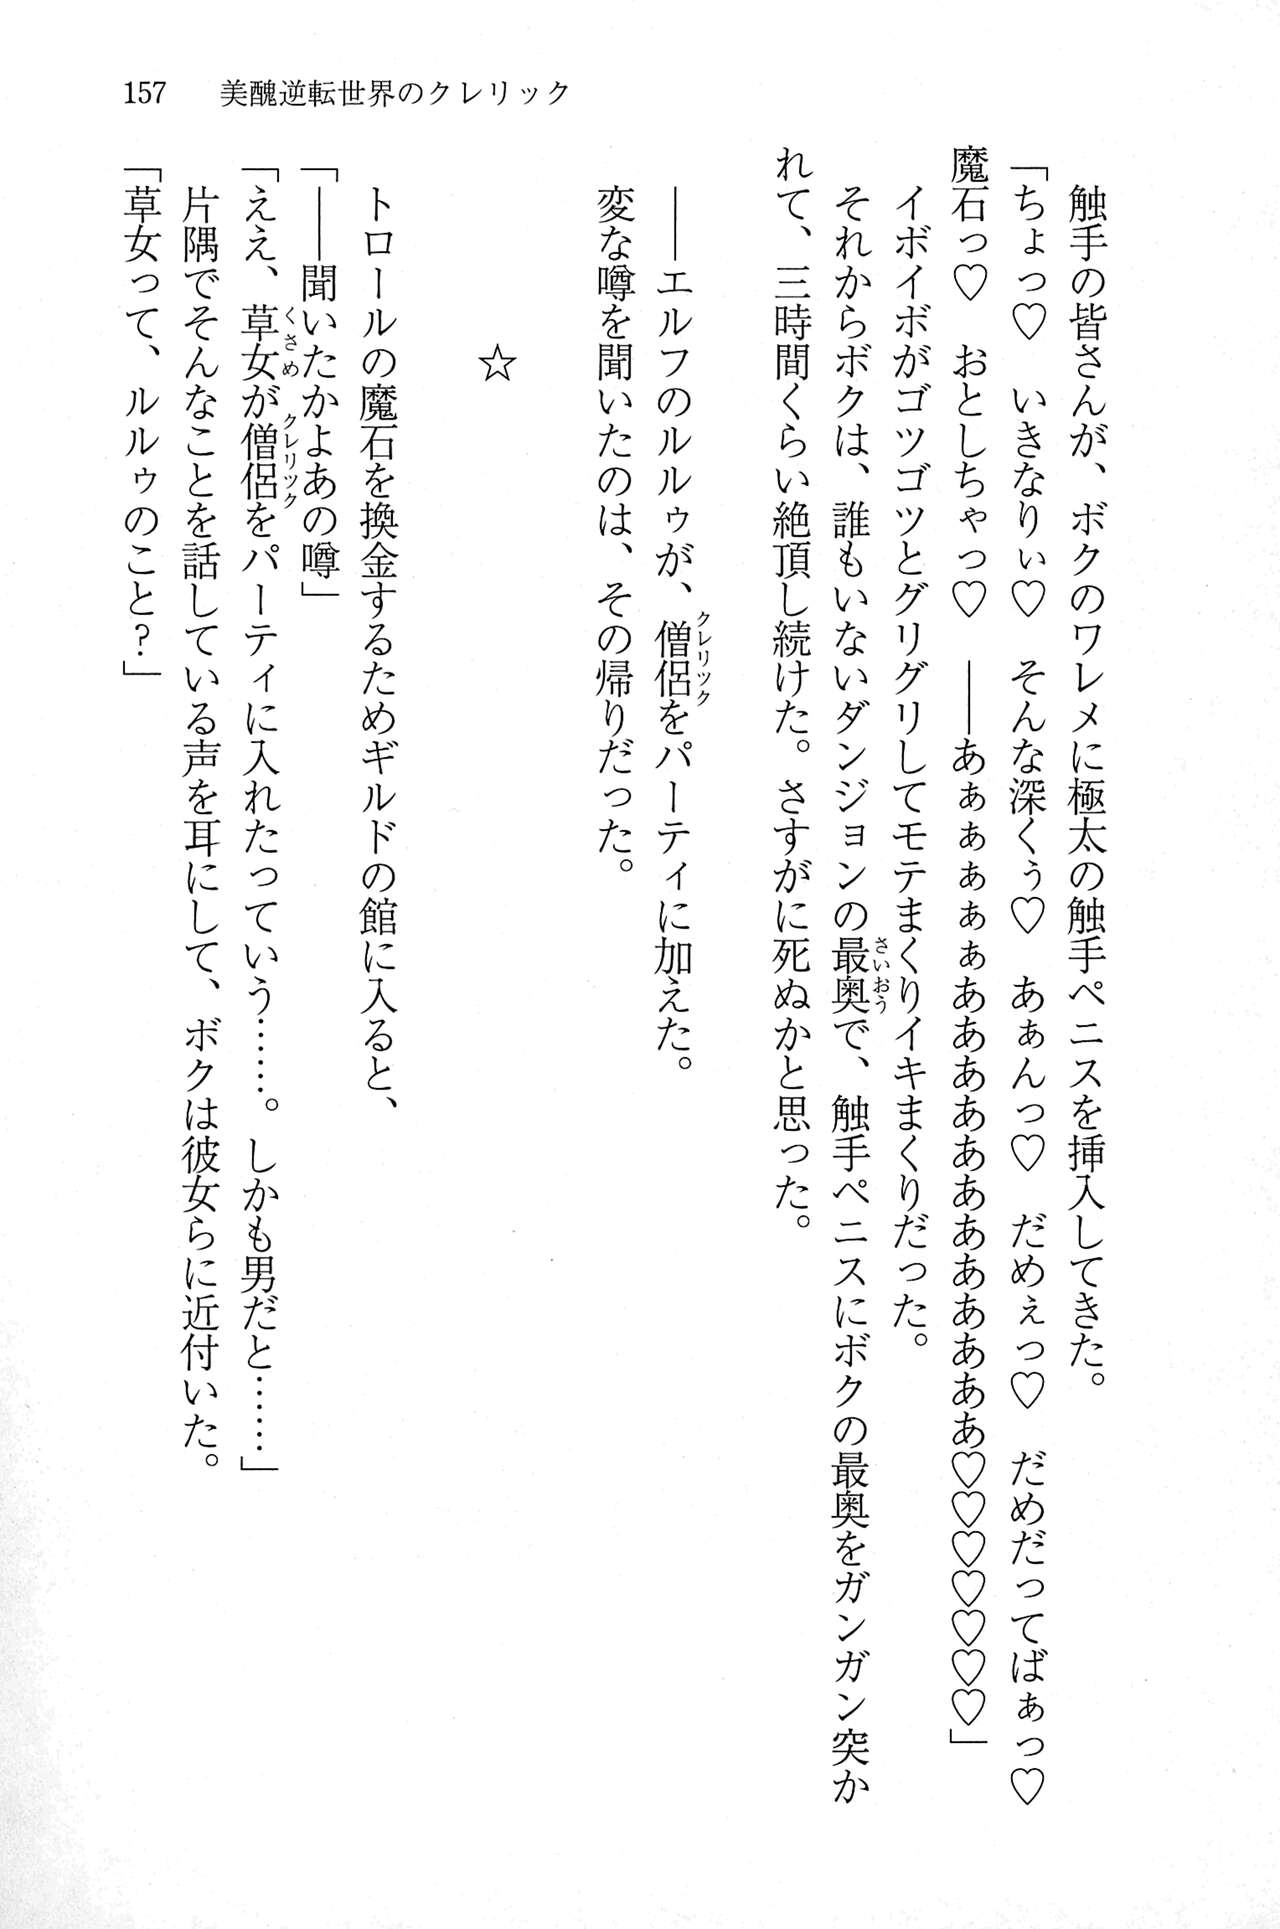 157　美醜逆転世界のクレリック
　触手の皆さんが、ボクのワレメに極太の触手ペニスを挿入してきた。
「ちょっ♡　いきなりぃ♡　そんな深くぅ♡　あぁんっ♡　だめぇっ♡　だめだってばぁっ♡
魔石っ♡　おとしちゃっ♡　――あぁぁぁぁぁああああああああああああ♡♡♡♡♡♡♡」
　イボイボがゴツゴツとグリグリしてモテまくりイキまくりだった。
　それからボクは、誰もいないダンジョンの最奥で、触手ペニスにボクの最奥をガンガン突か
さいおう
れて、三時間くらい絶頂し続けた。さすがに死ぬかと思った。
　――エルフのルルゥが、僧侶をパーティに加えた。
クレリック
　変な噂を聞いたのは、その帰りだった。
☆
　トロールの魔石を換金するためギルドの館に入ると、
「――聞いたかよあの噂」
「ええ、草女が僧侶をパーティに入れたっていう……。しかも男だと……」
くさめ　クレリック
　片隅でそんなことを話している声を耳にして、ボクは彼女らに近付いた。
「草女って、ルルゥのこと？」